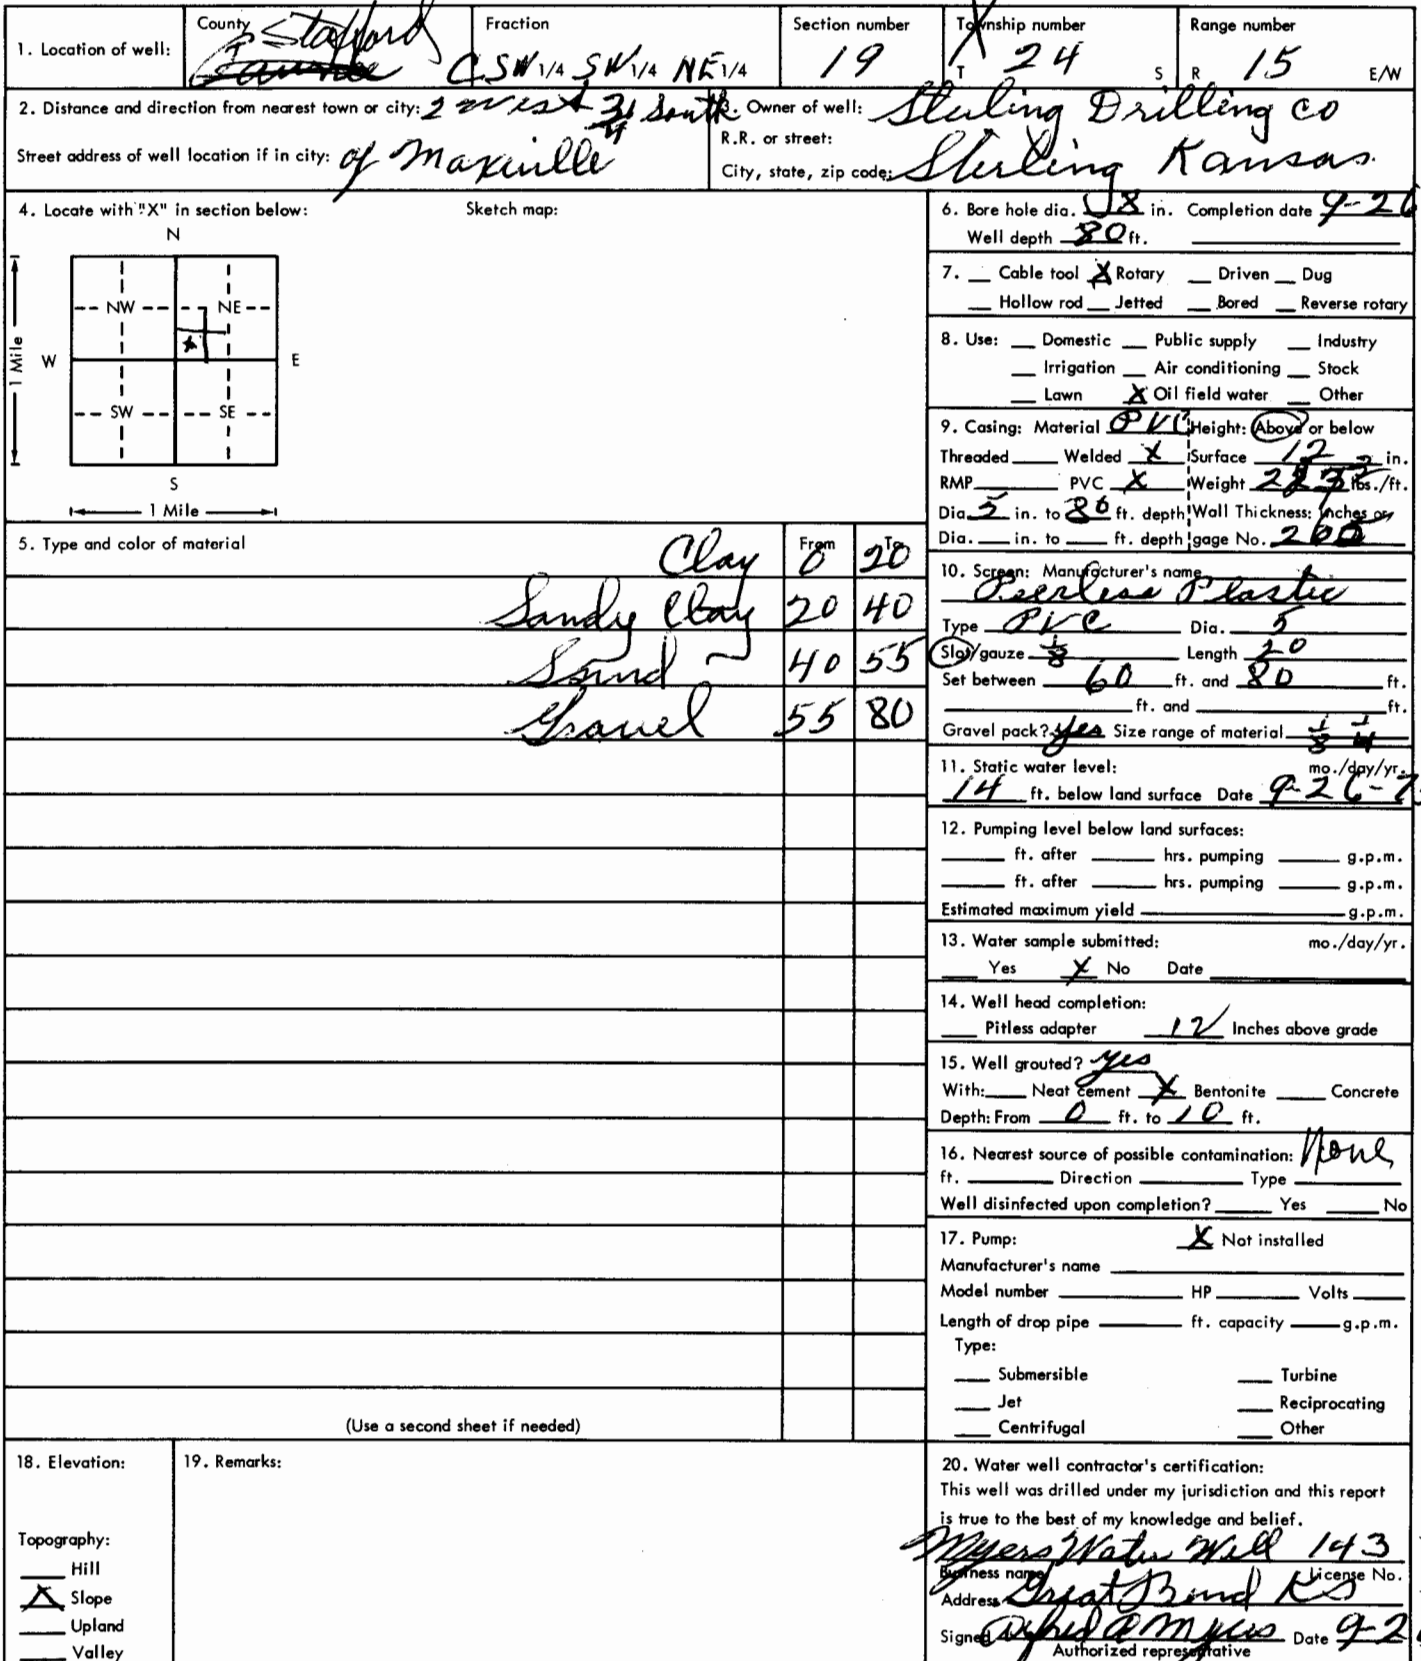 County Fraction Section number Township number Range number
1. Location of well: Stafford C SW 1/4 SW 1/4 NE 1/4 19 T 24 S R 15 E/W
2. Distance and direction from nearest town or city: 2 west 3/4 South 3. Owner of well: Sterling Drilling co
R.R. or street:
Street address of well location if in city: of Maxville City, state, zip code: Sterling Kansas.
4. Locate with "X" in section below: Sketch map:
N
NW NE
W E
SW SE
S
1 Mile
1 Mile
5. Type and color of material From To
Clay 0 20
Sandy Clay 20 40
Sand 40 55
Gravel 55 80
(Use a second sheet if needed)
6. Bore hole dia. 8 in. Completion date 9-26
Well depth 80 ft.
7. Cable tool X Rotary Driven Dug
Hollow rod Jetted Bored Reverse rotary
8. Use: Domestic Public supply Industry
Irrigation Air conditioning Stock
Lawn X Oil field water Other
9. Casing: Material PVC Height: Above or below
Threaded Welded X Surface 12 in.
RMP PVC X Weight lbs./ft.
Dia. 5 in. to 80 ft. depth Wall Thickness: inches or
Dia. in. to ft. depth gage No. 200
10. Screen: Manufacturer's name
Peerless Plastic
Type PVC Dia. 5
Slot/gauze 1/8 Length 20
Set between 60 ft. and 80 ft.
ft. and ft.
Gravel pack? yes Size range of material 1/8 1/4
11. Static water level: mo./day/yr.
14 ft. below land surface Date 9-26-7
12. Pumping level below land surfaces:
ft. after hrs. pumping g.p.m.
ft. after hrs. pumping g.p.m.
Estimated maximum yield g.p.m.
13. Water sample submitted: mo./day/yr.
Yes X No Date
14. Well head completion:
Pitless adapter 12 Inches above grade
15. Well grouted? yes
With: Neat cement X Bentonite Concrete
Depth: From 0 ft. to 10 ft.
16. Nearest source of possible contamination: None
ft. Direction Type
Well disinfected upon completion? Yes No
17. Pump: X Not installed
Manufacturer's name
Model number HP Volts
Length of drop pipe ft. capacity g.p.m.
Type:
Submersible Turbine
Jet Reciprocating
Centrifugal Other
18. Elevation:
Topography:
Hill
X Slope
Upland
Valley
19. Remarks:
20. Water well contractor's certification:
This well was drilled under my jurisdiction and this report
is true to the best of my knowledge and belief.
Myers Water Well 143
Business name License No.
Address Great Bend KS
Signed Alfred A Myers Date 9-2
Authorized representative